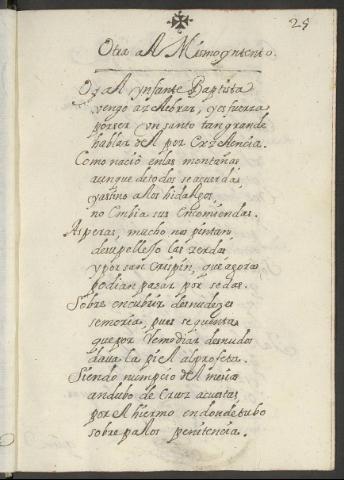 29
Otra al Mismo yntento.
Oy al ynfante Baptista
vengo a zelebrar, y es fuerza
por ser Un santo tan grande
hablar del por Excelencia.
Como nació en las montañas
aunque de todos se acuerda
castiuo a los hidalgos
no Embia sus Encomiendas.
Asperas, mucho nos pintan
de su pellejo las zerdas
y por san Crispin, que agora
podian pasar por sedas.
Sobre encubrir desnudezes
semoria, pues se quenta
que por Remediar desnudos
daua la piel al profeta.
Siendo nunçio del mesias
andubo de Cruz acuestas
por el hiermo en donde tubo
sobre palos penitencia.